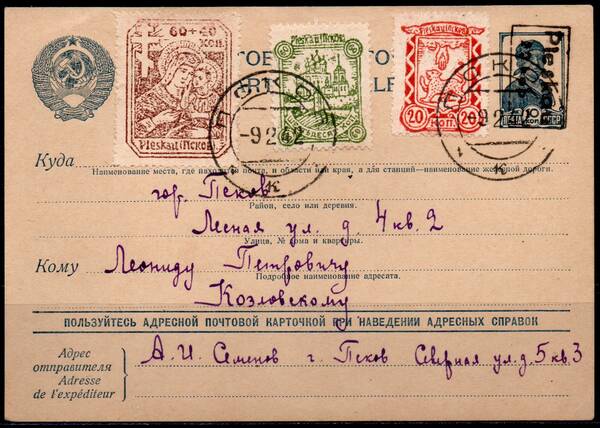 60+40
КОП.
Pleskau(Псков)
Pleskau(Псков)
60 60
Pleskau(Псков)
20 КОП. 20
Pleskau
ПСКОВ
-9 2 42
К
ПСКОВ
-9 2 42
К
Куда
Наименование места, где находится почта, и области или края, а для станций—наименование железной дороги.
гор. Псков
Район, село или деревня.
Лесная ул. д. 4 кв. 2
Улица, № дома и квартиры.
Кому Леониду Петровичу
Подробное наименование адресата.
Козловскому
ПОЛЬЗУЙТЕСЬ АДРЕСНОЙ ПОЧТОВОЙ КАРТОЧКОЙ ПРИ НАВЕДЕНИИ АДРЕСНЫХ СПРАВОК
Адрес
отправителя
Adresse
de l'expéditeur
А. И. Семенов г. Псков Северная ул. д. 5 кв. 3